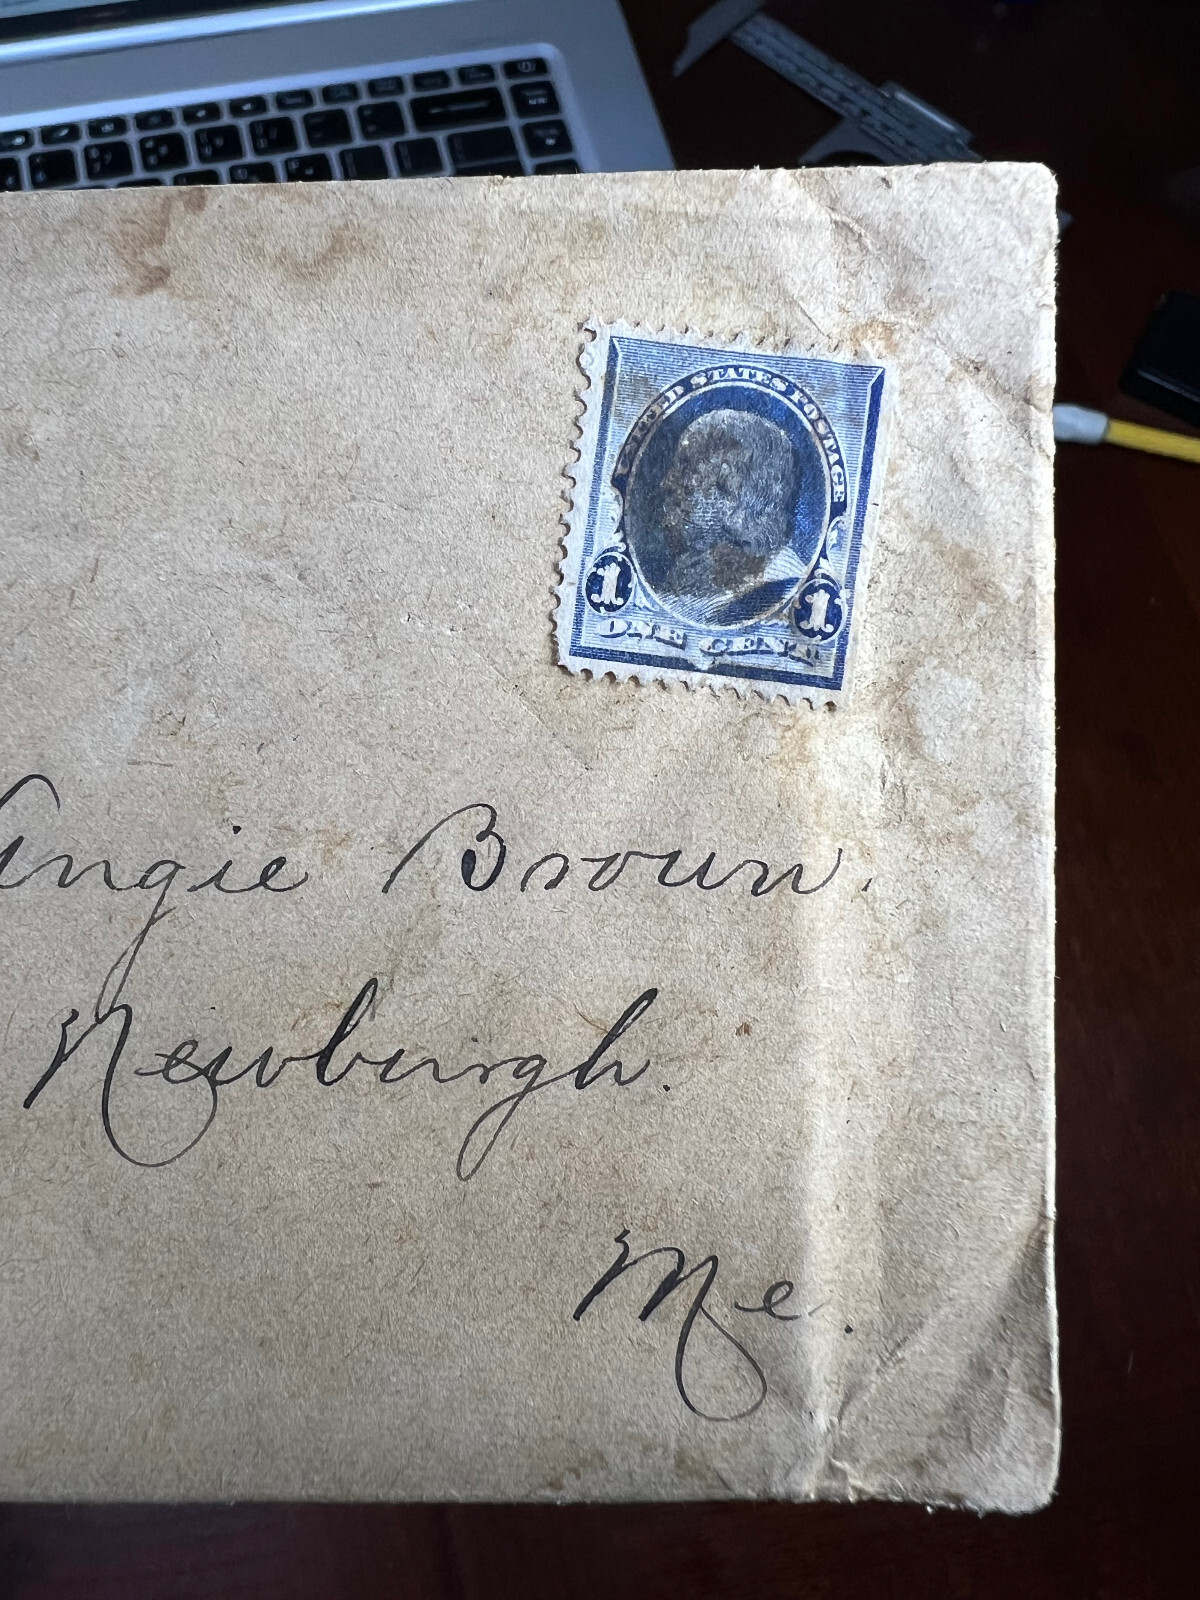 UNITED STATES POSTAGE
1 1
ONE CENT
Angie Brown.
Newburgh.
Me.